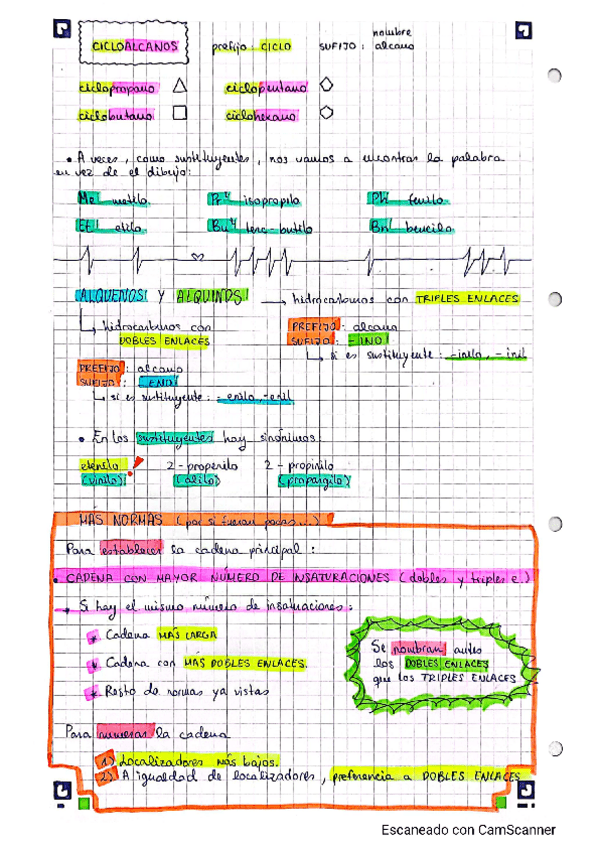 nombre
CICLOALCANOS prefijo: CICLO SUFIJO: alcano
ciclopropano ciclopentano
ciclobutano ciclohexano
• A veces, como sustituyentes, nos vamos a encontrar la palabra
en vez de el dibujo:
Me metilo Prⁱ isopropilo Ph fenilo
Et etilo Buᵗ terc-butilo Bn bencilo
ALQUENOS Y ALQUINOS → hidrocarburos con TRIPLES ENLACES
↳ hidrocarburos con PREFIJO: alcano
DOBLES ENLACES SUFIJO: -INO
↳ si es sustituyente: -inilo, -inil
PREFIJO: alcano
SUFIJO: -ENO
↳ si es sustituyente: -enilo, -enil
• En los sustituyentes hay sinónimos:
etenilo ! 2-propenilo 2-propinilo
(vinilo) (alilo) (propargilo)
MÁS NORMAS (por si fueran pocas...)
Para establecer la cadena principal:
• CADENA CON MAYOR NÚMERO DE INSATURACIONES (dobles y triples e.)
• Si hay el mismo número de insaturaciones:
* Cadena MÁS LARGA
* Cadena con MÁS DOBLES ENLACES.
* Resto de normas ya vistas
Se nombran antes
los DOBLES ENLACES
que los TRIPLES ENLACES
Para numerar la cadena
1) Localizadores más bajos.
2) A igualdad de localizadores, preferencia a DOBLES ENLACES
Escaneado con CamScanner